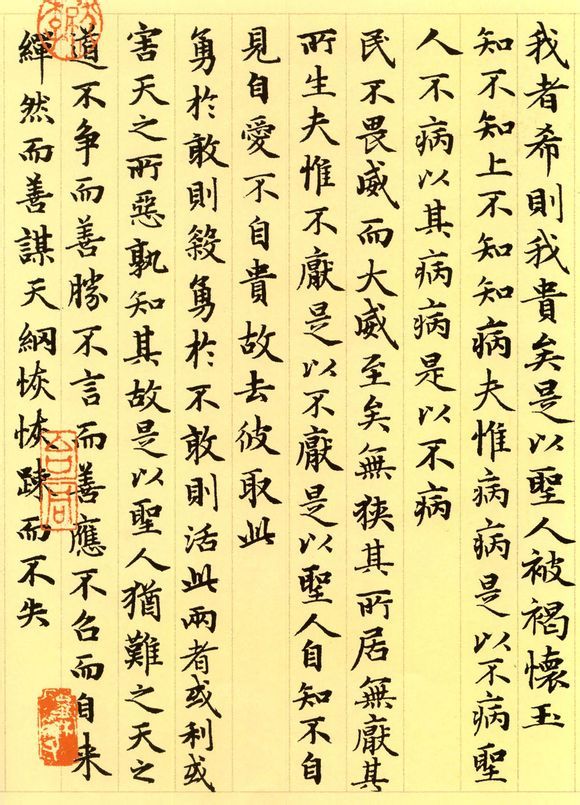 我者希則我貴矣是以聖人被褐懷玉
知不知上不知知病夫惟病病是以不病聖
人不病以其病病是以不病
民不畏威而大威至矣無狹其所居無厭其
所生夫惟不厭是以不厭是以聖人自知不自
見自愛不自貴故去彼取此
勇於敢則殺勇於不敢則活此兩者或利或
害天之所惡孰知其故是以聖人猶難之天之
道不争而善勝不言而善應不召而自来
繟然而善謀天網恢恢踈而不失